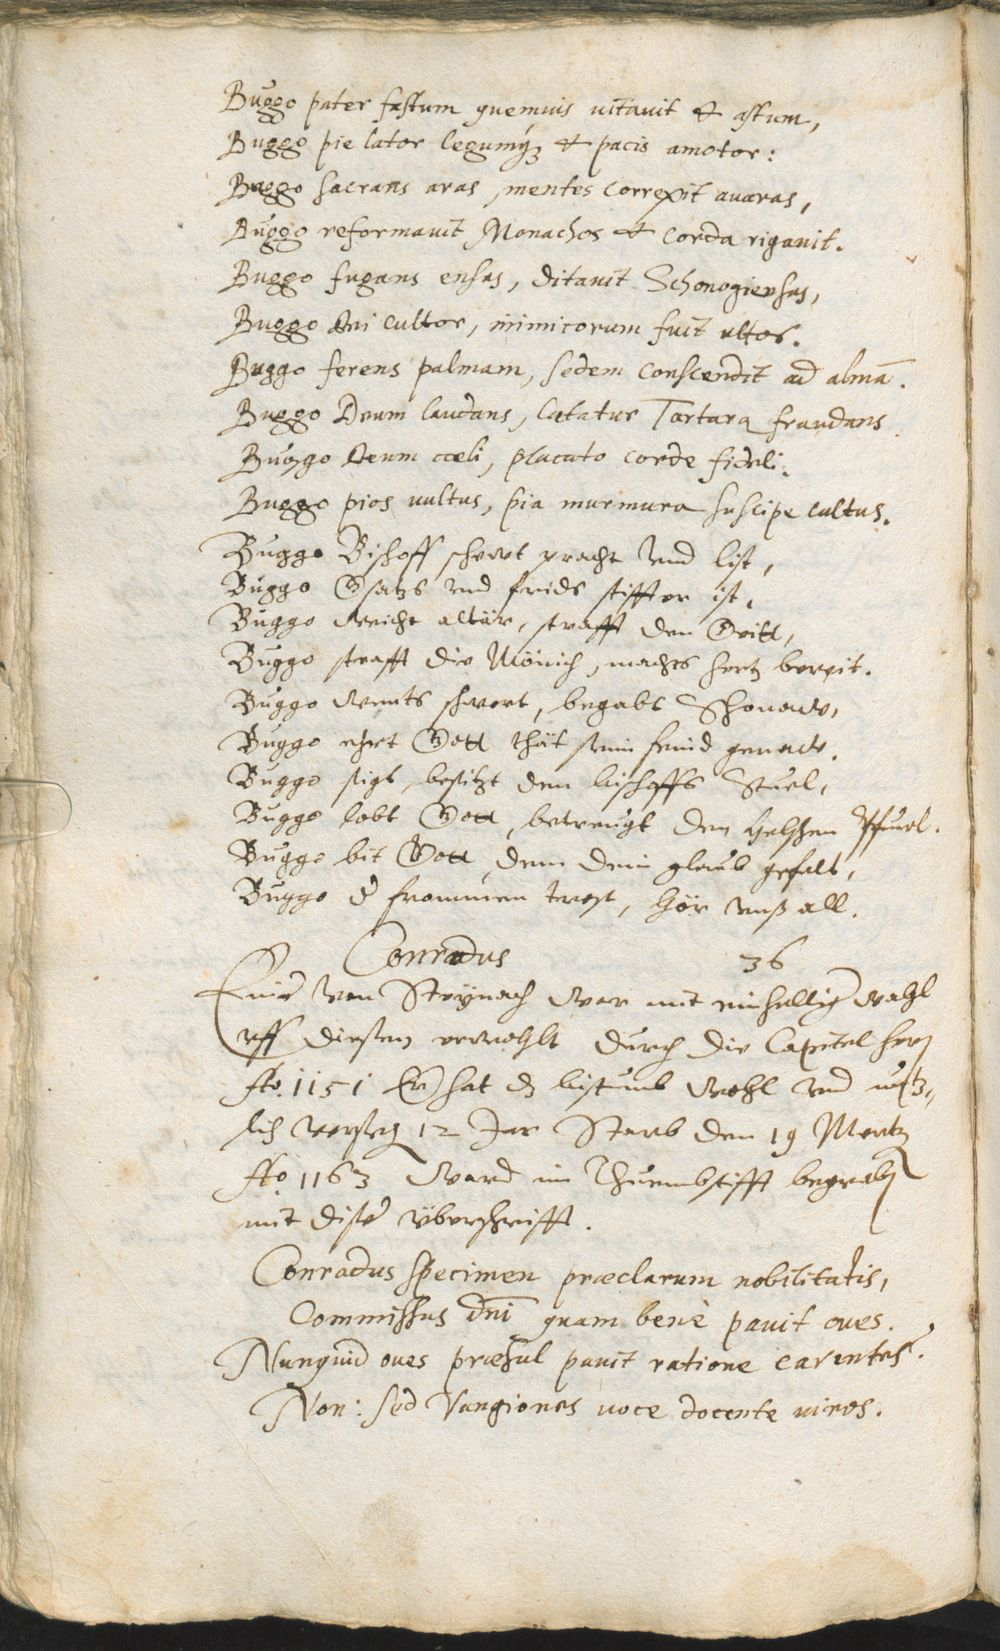 Buggo pater fastum quemuis uitauit et astum,
Buggo pie lator legumq₃ et pacis amator:
Buggo sacrans aras, mentes correxit auaras,
Buggo reformauit Monachos et corda rigauit.
Buggo fugans enses, ditauit Schonogienses,
Buggo Dei cultor, inimicorum fuit ultor.
Buggo ferens palmam, sedem conscendit ad almā.
Buggo Deum laudans, lætatur Tartara fraudans.
Buggo Deum cœli, placato corde fideli.
Buggo pios uultus, pia murmura suscipe cultus.
Buggo Bischoff schewt pracht vnd list,
Buggo Gsatzs vnd frids stiffter ist,
Buggo Weicht altär, strafft den Geitt,
Buggo strafft die Mönich, machts hertz bereit.
Buggo Wents schwert, begabt Schonaw,
Buggo ehrt Gott thät sein feind genaw.
Buggo sigt, besitzt den bischoffs Stuel,
Buggo lobt Gott, betreugt den helschen Pfuel.
Buggo bit Gott, dem dein glaub gefalt,
Buggo d' frommen trost, hör vnß all.
Conradus 36
Einer von Steynach War mit einhellig' Wahl
uff diesem erwehlt durch die Capitel hern
Ao. 1151 Er hat dz bistumb Wohl vnd nutz,,
lich versehen 12 Jar Starb den 19 Mertz
Ao. 1163 Ward im Thumbstifft begraben
mit diser überschrifft.
Conradus specimen præclarum nobilitatis,
Commissus dni quam benè pauit oues.
Nunquid oues præsul pauit ratione carentes?
Non: sed Vangiones uoce docente uiros.